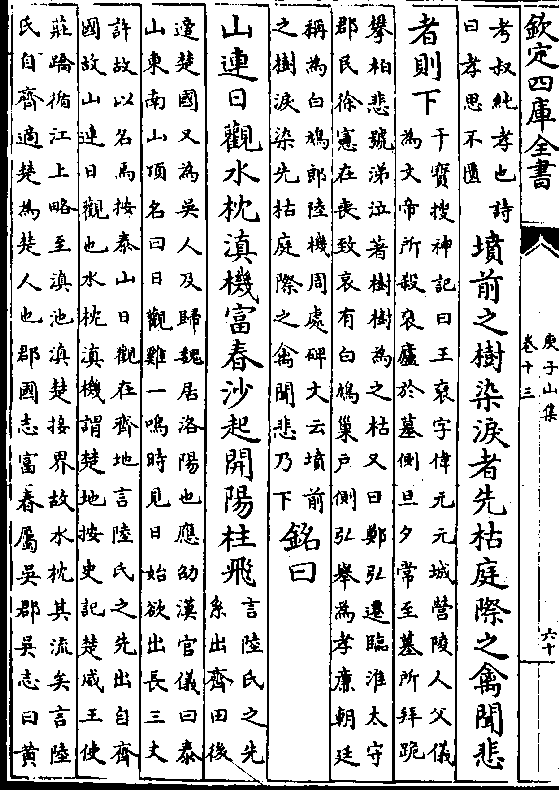 欽定四庫全書
庾子山集
卷十三
六十
考叔純孝也詩
曰孝思不匱
墳前之樹染淚者先枯庭際之禽聞悲
者則下
干寶搜神記曰王裒字偉元元城營陵人父儀
為文帝所殺裒廬於墓側旦夕常至墓所拜跪
攀柏悲號涕泣著樹樹為之枯又曰鄭弘遷臨淮太守
郡民徐憲在喪致哀有白鳩巢户側弘舉為孝廉朝廷
稱為白鳩郎陸機周處碑文云墳前
之樹淚染先枯庭際之禽聞悲乃下
銘曰
山連日觀水枕滇機富春沙起開陽柱飛
言陸氏之先
系出齊田後
違楚國又為吳人及歸魏居洛陽也應劭漢官儀曰泰
山東南山頂名曰日觀雞一鳴時見日始欲出長三丈
許故以名焉按泰山日觀在齊地言陸氏之先出自齊
國故山連日觀也水枕滇機謂楚地按史記楚威王使
莊蹻循江上略至滇池滇楚接界故水枕其流矣言陸
氏自齊適楚為楚人也郡國志富春屬吳郡吳志曰黃